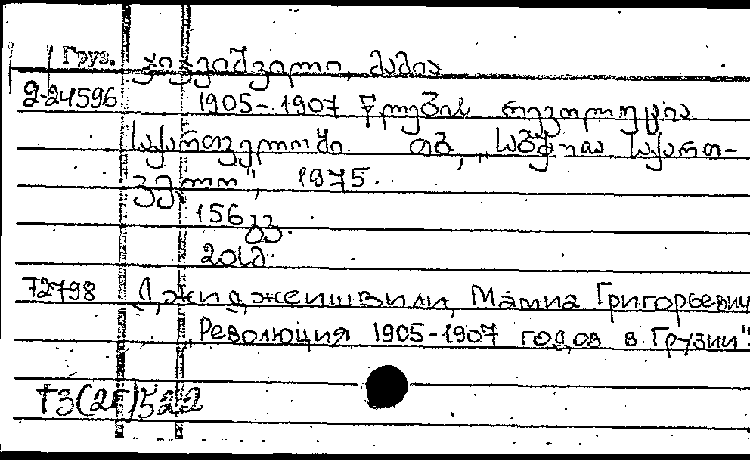 Груз. ჯიჯეიშვილი, მამია
2-24596 1905-1907 წლების რევოლუცია
საქართველოში თბ., „საბჭოთა საქართ-
ველო", 1975.
156 გვ.
20სმ.
72798 Джиджеишвили, Мамиа Григорьевич
„Революция 1905-1907 годов в Грузии".
Т3(2Г)522